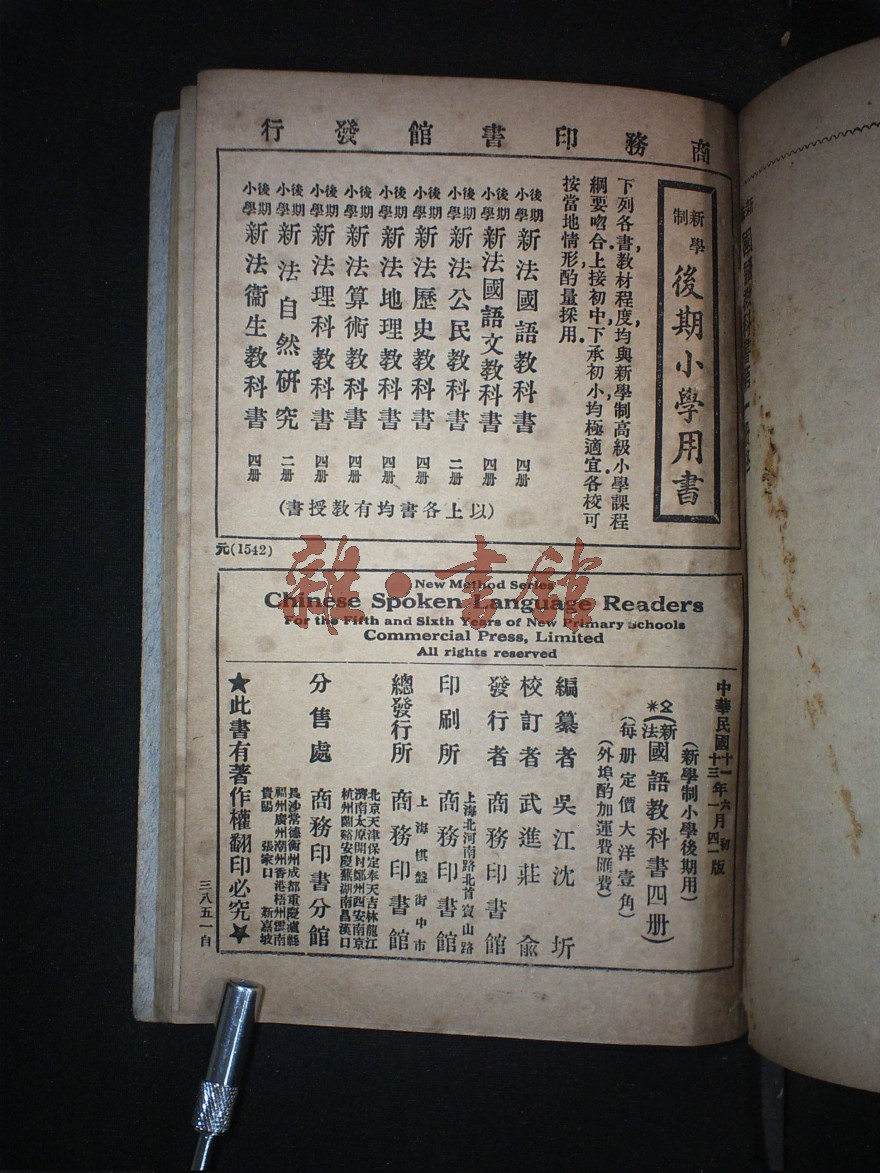 商務印書館發行
新學制
後期小學用書
下列各書,教材程度均與新學制高級小學課程
綱要吻合.上接初中,下承初小,均極適宜.各校可
按當地情形,酌量採用.
後期小學 新法國語教科書 四册
後期小學 新法國語文教科書 四册
後期小學 新法公民教科書 二册
後期小學 新法歷史教科書 四册
後期小學 新法地理教科書 四册
後期小學 新法算術教科書 四册
後期小學 新法理科教科書 四册
後期小學 新法自然研究 二册
後期小學 新法衞生教科書 四册
(以上各書均有教授書)
元(1542)
雜·書館
New Method Series
Chinese Spoken Language Readers
For the Fifth and Sixth Years of New Primary Schools
Commercial Press, Limited
All rights reserved
中華民國十一年六月初版
十三年一月四一版
(新學制小學後期用)
(新法國語教科書四册)
(每册定價大洋壹角)
(外埠酌加運費匯費)
編纂者 吳江沈圻
校訂者 武進莊俞
發行者 商務印書館
上海北河南路北首寶山路
印刷所 商務印書館
上海棋盤街中市
總發行所 商務印書館
北京天津保定奉天吉林龍江
濟南太原開封鄭州西安南京
杭州蘭谿安慶蕪湖南昌漢口
分售處 商務印書分館
長沙常德衡州成都重慶瀘縣
福州廣州潮州香港梧州雲南
貴陽 張家口 新嘉坡
★此書有著作權翻印必究★
三八五一自